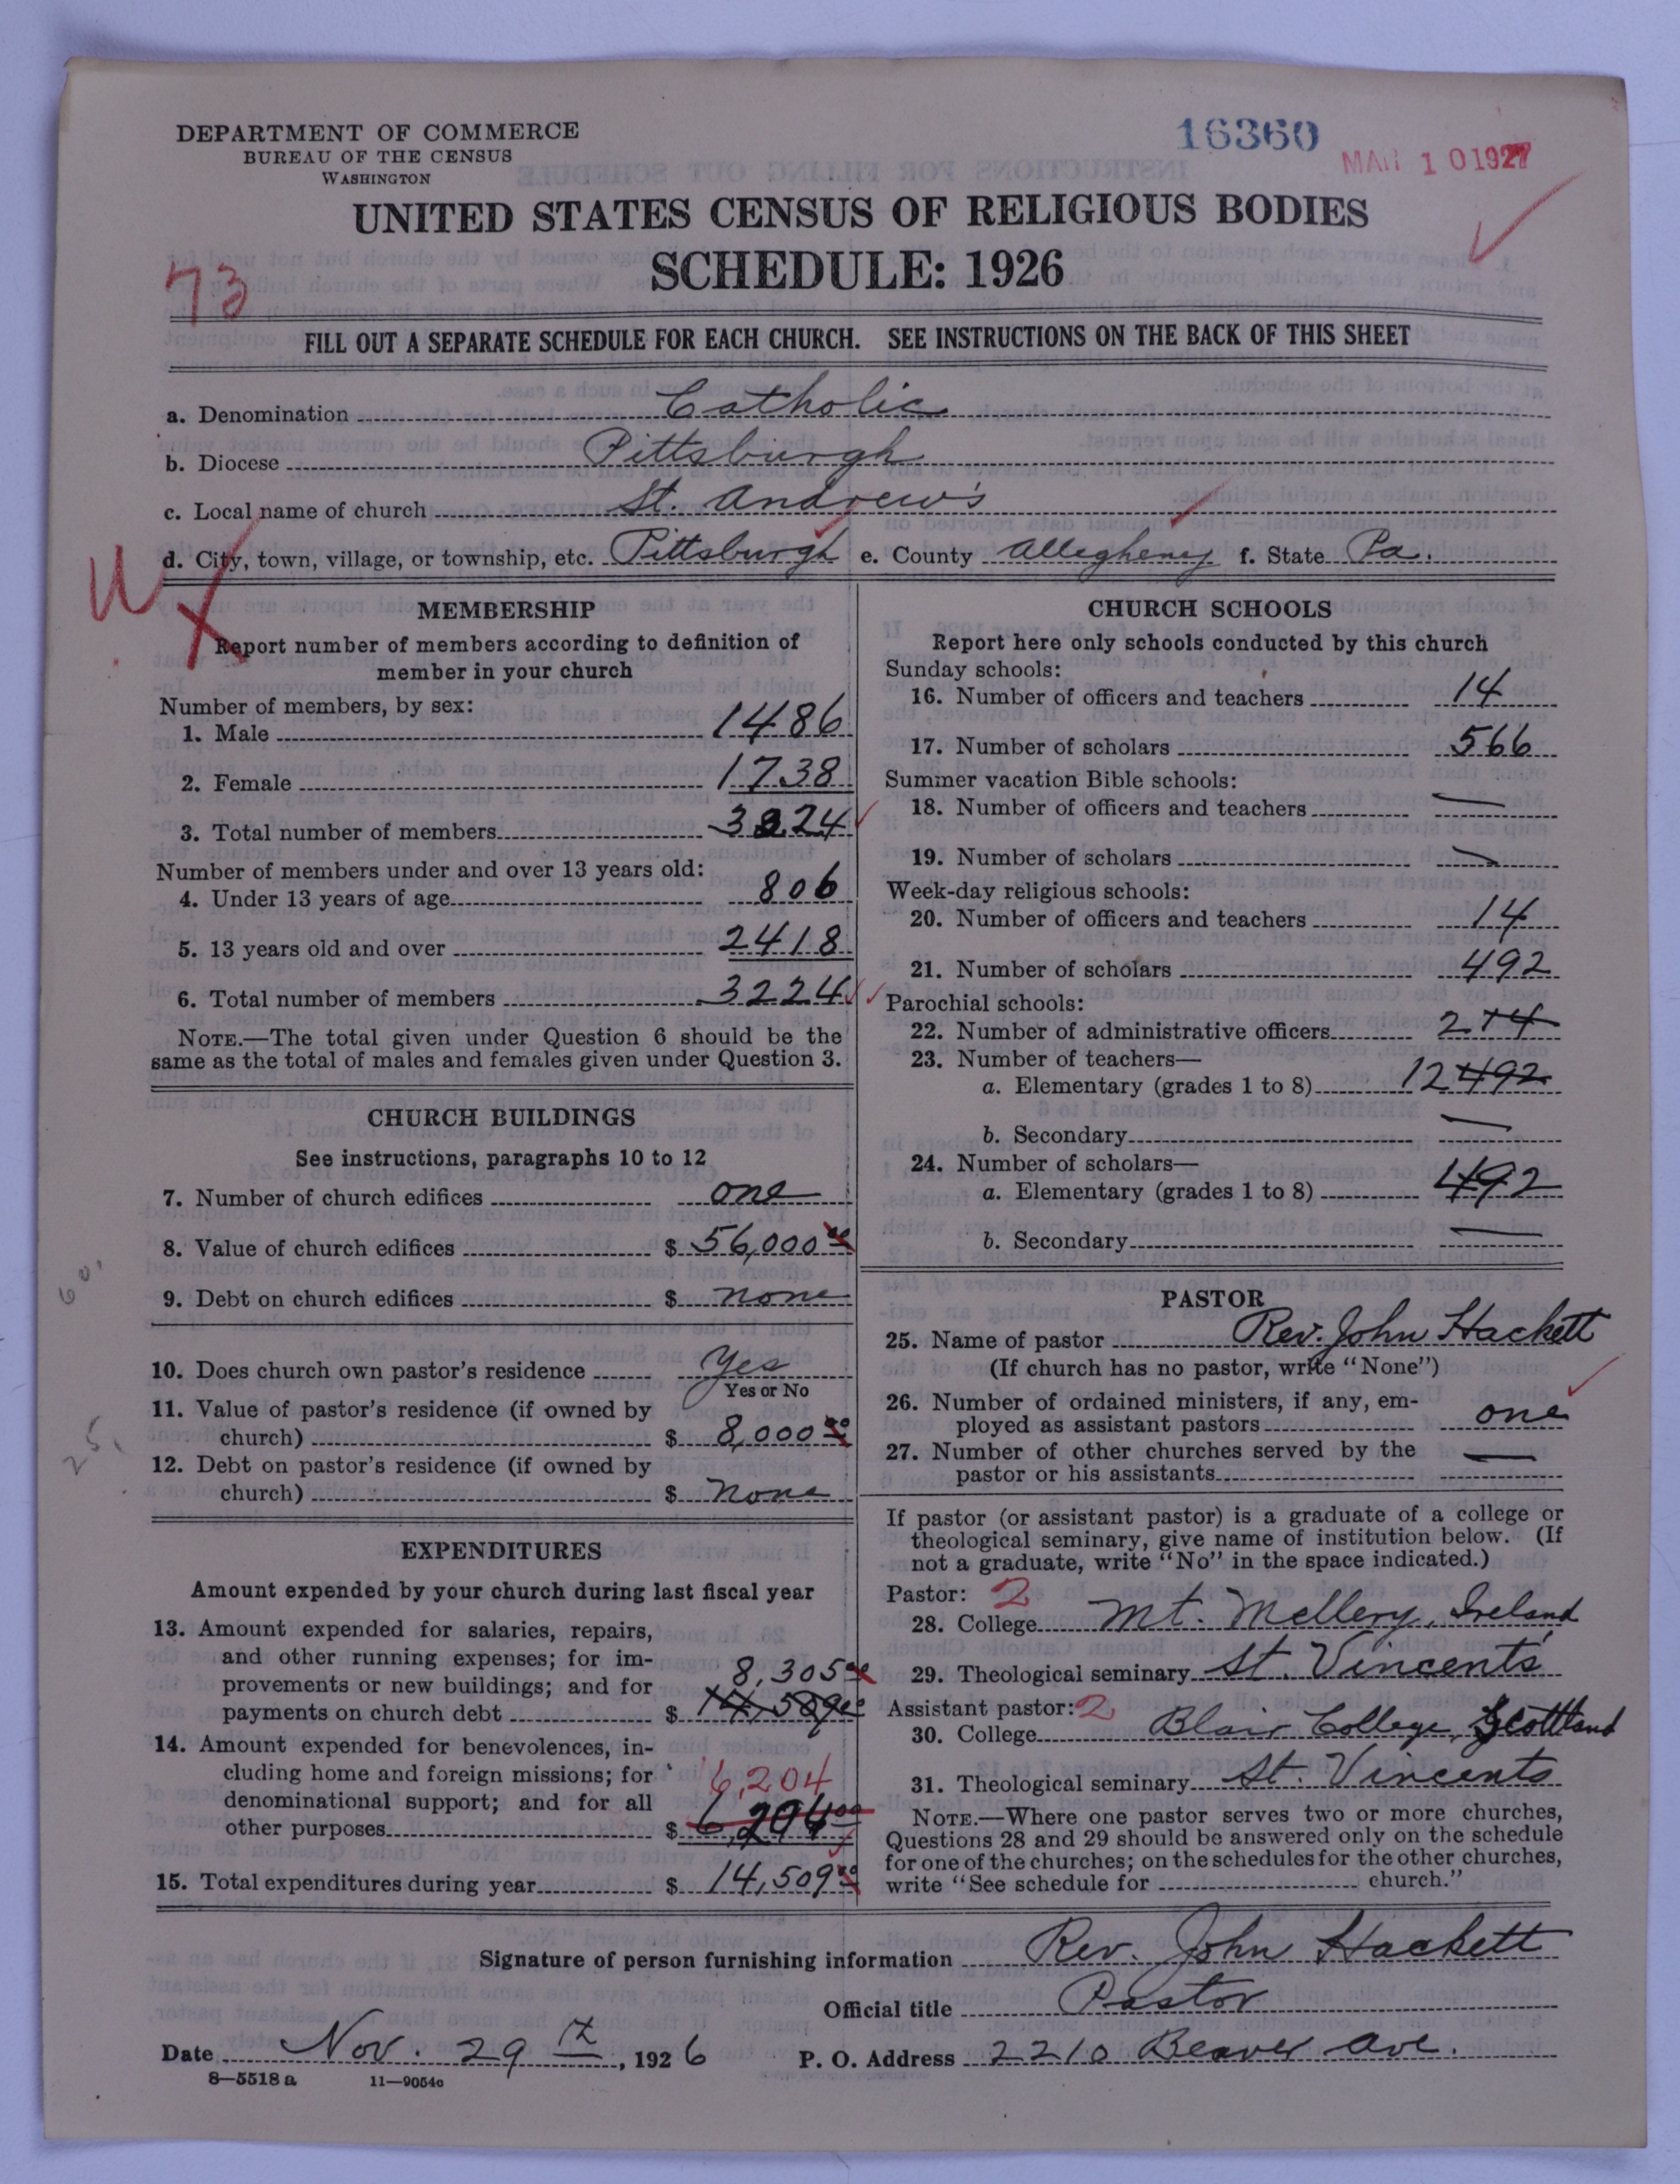 DEPARTMENT OF COMMERCE
BUREAU OF THE CENSUS
WASHINGTON
16360
MAR 10 1927
UNITED STATES CENSUS OF RELIGIOUS BODIES
SCHEDULE: 1926
73
FILL OUT A SEPARATE SCHEDULE FOR EACH CHURCH. SEE INSTRUCTIONS ON THE BACK OF THIS SHEET
a. Denomination Catholic
b. Diocese Pittsburgh
c. Local name of church St. Andrew's
d. City, town, village, or township, etc. Pittsburgh e. County Allegheny f. State Pa.
MEMBERSHIP
Report number of members according to definition of
member in your church
Number of members, by sex:
1. Male 1486
2. Female 1738
3. Total number of members 3224
Number of members under and over 13 years old:
4. Under 13 years of age 806
5. 13 years old and over 2418
6. Total number of members 3224
NOTE.—The total given under Question 6 should be the
same as the total of males and females given under Question 3.
CHURCH BUILDINGS
See instructions, paragraphs 10 to 12
7. Number of church edifices one
8. Value of church edifices $ 56,000 00
9. Debt on church edifices $ none
10. Does church own pastor's residence Yes
Yes or No
11. Value of pastor's residence (if owned by
church) $ 8,000 00
12. Debt on pastor's residence (if owned by
church) $ none
EXPENDITURES
Amount expended by your church during last fiscal year
13. Amount expended for salaries, repairs,
and other running expenses; for im-
provements or new buildings; and for 8,305 00
payments on church debt $ 14,509 00
14. Amount expended for benevolences, in-
cluding home and foreign missions; for 6,204
denominational support; and for all
other purposes $ 6,204 00
15. Total expenditures during year $ 14,509 00
CHURCH SCHOOLS
Report here only schools conducted by this church
Sunday schools:
16. Number of officers and teachers 14
17. Number of scholars 566
Summer vacation Bible schools:
18. Number of officers and teachers —
19. Number of scholars —
Week-day religious schools:
20. Number of officers and teachers 14
21. Number of scholars 492
Parochial schools:
22. Number of administrative officers 2 14
23. Number of teachers—
a. Elementary (grades 1 to 8) 12 492
b. Secondary —
24. Number of scholars—
a. Elementary (grades 1 to 8) 492
b. Secondary —
PASTOR
25. Name of pastor Rev. John Hackett
(If church has no pastor, write "None")
26. Number of ordained ministers, if any, em-
ployed as assistant pastors one
27. Number of other churches served by the
pastor or his assistants —
If pastor (or assistant pastor) is a graduate of a college or
theological seminary, give name of institution below. (If
not a graduate, write "No" in the space indicated.)
Pastor: 2
28. College Mt. Mellery, Ireland
29. Theological seminary St. Vincent's
Assistant pastor: 2
30. College Blair College, Scottland
31. Theological seminary St. Vincents
NOTE.—Where one pastor serves two or more churches,
Questions 28 and 29 should be answered only on the schedule
for one of the churches; on the schedules for the other churches,
write "See schedule for church."
Signature of person furnishing information Rev. John Hackett
Official title Pastor
Date Nov. 29th, 1926 P. O. Address 2210 Beaver Ave.
8—5518 a 11—9054c